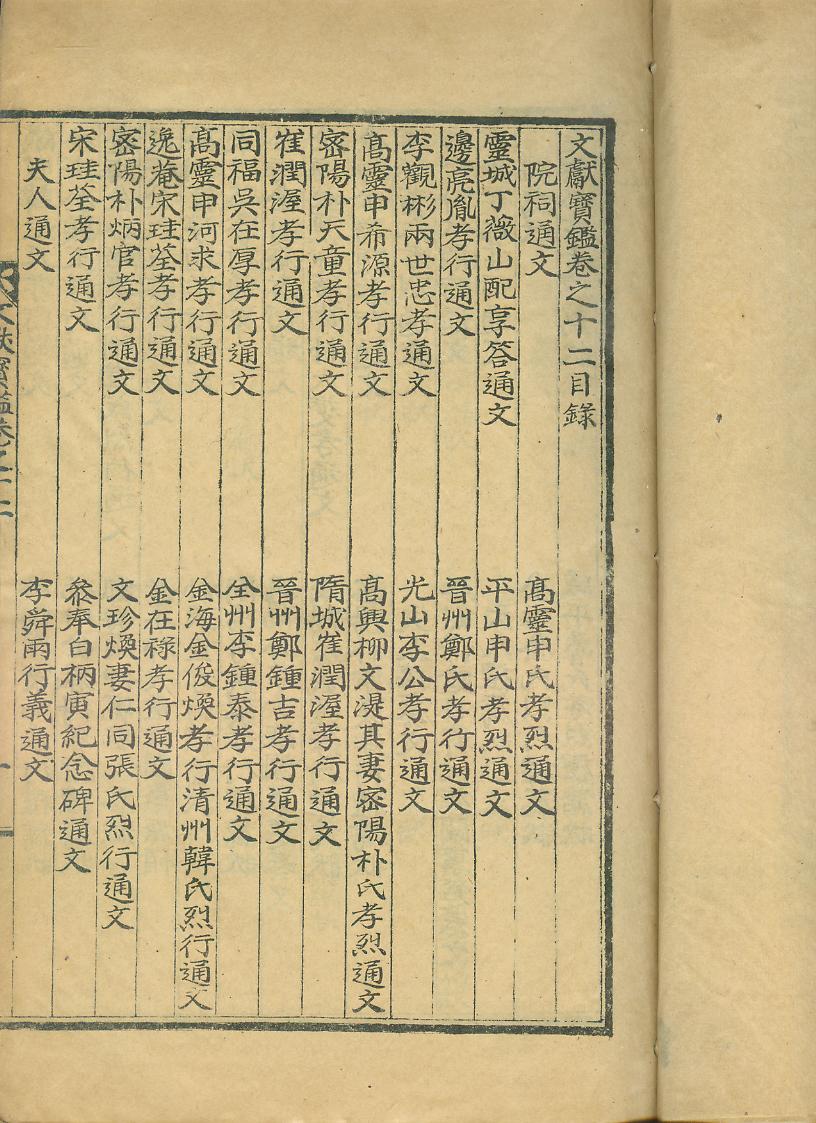 文獻寶鑑卷之十二目錄
院祠通文
靈城丁薇山配享答通文
邊亮胤孝行通文
李觀彬兩世忠孝通文
高靈申希源孝行通文
密陽朴天童孝行通文
崔潤渥孝行通文
同福吳在厚孝行通文
高靈申河求孝行通文
逸菴宋珪荃孝行通文
密陽朴炳官孝行通文
宋珪荃孝行通文
夫人通文
高靈申氏孝烈通文
平山申氏孝烈通文
晉州鄭氏孝行通文
光山李公孝行通文
高興柳文湜其妻密陽朴氏孝烈通文
隋城崔潤渥孝行通文
晉州鄭鍾吉孝行通文
全州李鍾泰孝行通文
金海金俊煥孝行清州韓氏烈行通文
金在祿孝行通文
文珍煥妻仁同張氏烈行通文
叅奉白柄寅紀念碑通文
李舜雨行義通文
文献寶鑑卷之十二
一